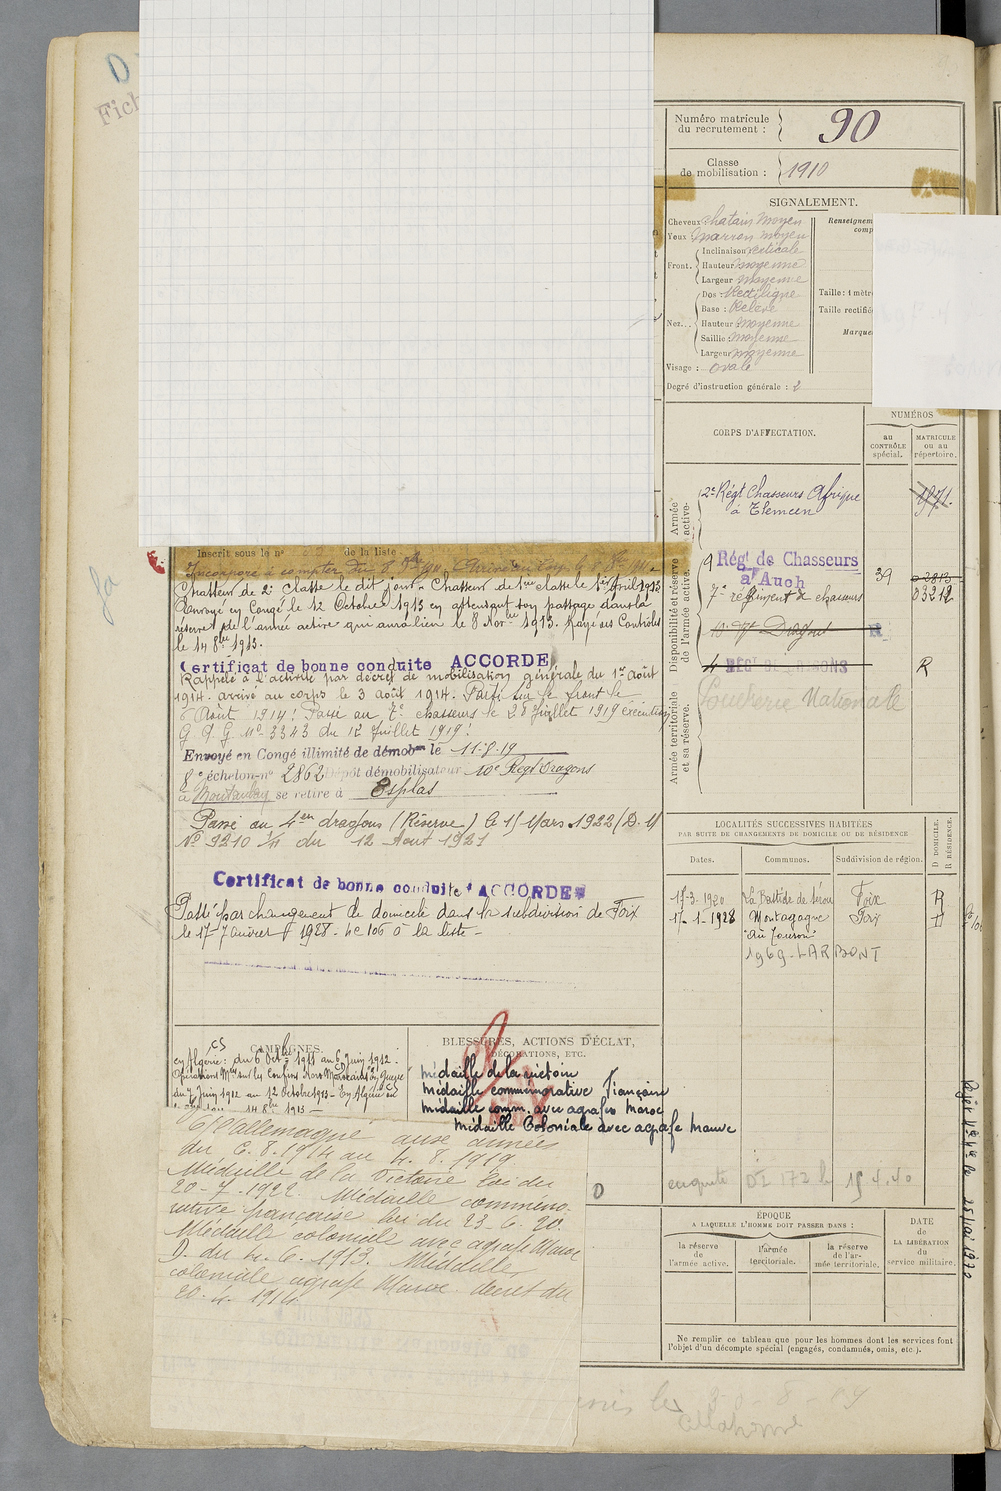 Fich
Numéro matricule
du recrutement :
90
Classe
de mobilisation :
1910
SIGNALEMENT.
Cheveux chatain moyen
Yeux marron moyen
Inclinaison verticale
Front. Hauteur moyenne
Largeur moyenne
Dos rectiligne
Base : Relevé
Nez... Hauteur moyenne
Saillie : moyenne
Largeur moyenne
Visage : ovale
Degré d'instruction générale : 2
Renseignem
comp
Taille : 1 mètr
Taille rectifié
Marque
CORPS D'AFFECTATION.
NUMÉROS
au
CONTRÔLE
spécial.
MATRICULE
ou au
répertoire.
Armée
active.
2e Régt Chasseurs Afrique
à Tlemcen
Disponibilité et réserve
de l'armée active.
9 Régt de Chasseurs
à Auch
39
7e régiment de chasseurs
03212
10e Rgt Dragons
R
4 REGT DE DRAGONS
R
Armée territoriale
et sa réserve.
Poudrerie Nationale
Inscrit sous le n° de la liste
Incorporé à compter du 8 8bre 1911. Arrivé au corps le 8 8bre 1911
Chasseur de 2e classe le dit jour. Chasseur de 1ère classe le 1er avril 1913
Renvoyé en Congé le 12 Octobre 1913 en attendant son passage dans la
réserve de l'armée active qui aura lieu le 8 Nov. 1913. Rayé des Contrôles
le 14 8bre 1913.
Certificat de bonne conduite ACCORDE
Rappelé à l'activité par décret de mobilisation générale du 1er août
1914. arrivé au corps le 3 août 1914. Parti sur le front le
6 Août 1914! Passé au 7e chasseurs le 28 Juillet 1919 exécution
G. Q. G. No 3343 du 12 Juillet 1919!
Envoyé en Congé illimité de démobon le 11-8-19
8e échelon-n° 2862 Dépôt démobilisateur 10e Régt Dragons
à Montauban se retire à Esplas
Passé au 4em dragons (Réserve) le 15 Mars 1922 (D. M
No 9210 1/11 du 12 Aout 1921
Certificat de bonne conduite ACCORDE
Passé par changement de domicile dans la subdivision de Foix
le 17 Janvier 1928 - No 106 à la liste -
LOCALITÉS SUCCESSIVES HABITÉES
PAR SUITE DE CHANGEMENTS DE DOMICILE OU DE RÉSIDENCE
D DOMICILE.
R RÉSIDENCE.
Dates.
Communes.
Subdivision de région.
17-3-1920 La Bastide de Sérou Foix R
17-1-1928 Montagagne Foix D
1969-LARBONT
CAMPAGNES
en Algérie : du 6 Octbre 1911 au 6 Juin 1912 :
du 7 juin 1912 au 12 Octobre 1913 - En Algérie du
14 8bre 1913 -
BLESSURES, ACTIONS D'ÉCLAT,
DÉCORATIONS, ETC.
médaille de la victoire
médaille commémorative Française
médaille comm. avec agrafe Maroc
médaille Coloniale avec agrafe Maroc
C/ l'allemagne aux armées
du 6.8.1914 au 4.8.1919
Médaille de la Victoire loi du
20-7-1922. Médaille commémo-
rative française loi du 23.6.20
Médaille coloniale avec agrafe Maroc
D. du 4.6.1913. Médaille
coloniale agrafe Maroc. décret du
20.4.1914
enquête DI 172 le 15 4.40
Rayé le 25 Mai 1920
ÉPOQUE
A LAQUELLE L'HOMME DOIT PASSER DANS :
la réserve
de
l'armée active.
l'armée
territoriale.
la réserve
de l'ar-
mée territoriale.
DATE
de
LA LIBÉRATION
du
service militaire.
Ne remplir ce tableau que pour les hommes dont les services font
l'objet d'un décompte spécial (engagés, condamnés, omis, etc.).